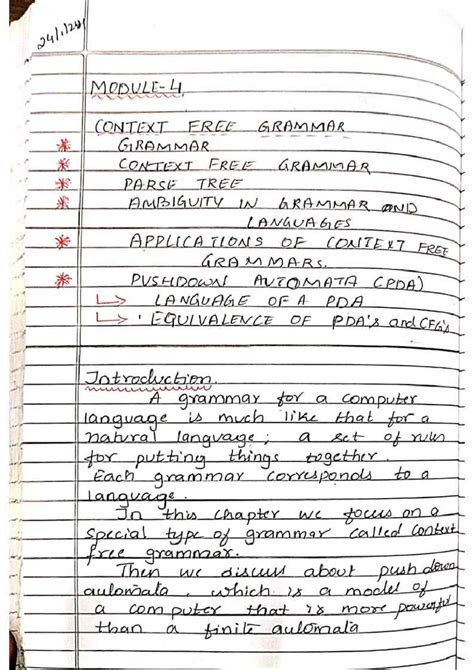 MODULE-4
CONTEXT FREE GRAMMAR
* GRAMMAR
* CONTEXT FREE GRAMMAR
* PARSE TREE
* AMBIGUITY IN GRAMMAR AND
LANGUAGES
* APPLICATIONS OF CONTEXT FREE
GRAMMARS.
* PUSHDOWN AUTOMATA (PDA)
↳ LANGUAGE OF A PDA
↳ EQUIVALENCE OF PDA's and CFG's
Introduction
A grammar for a computer
language is much like that for a
natural language; a set of rules
for putting things together.
Each grammar corresponds to a
language.
In this chapter we focus on a
special type of grammar called context
free grammar.
Then we discuss about push down
automata, which is a model of
a computer that is more powerful
than a finite automata